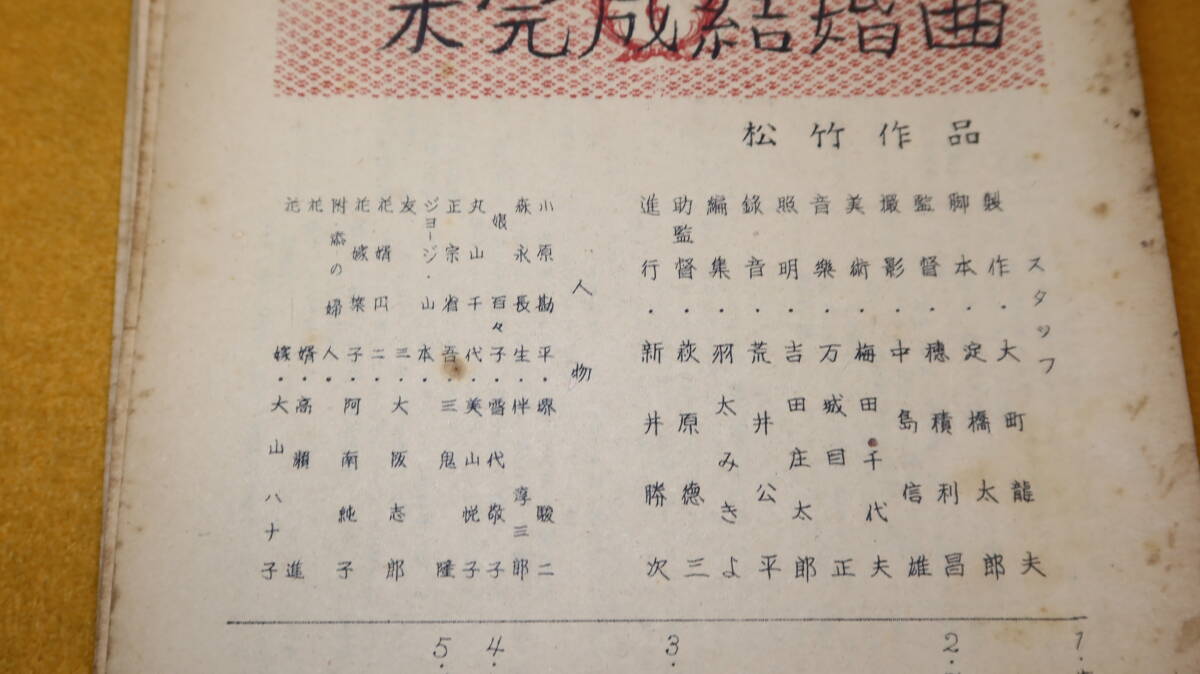 未完成結婚曲
松竹作品
スタッフ
製作・大町龍夫
脚本・淀橋太郎
監督・穂積利昌
撮影・中島信雄
美術・梅田千代夫
音樂・万城目正
照明・吉田庄太郎
錄音・荒井公平
編集・羽太みきよ
助監督・萩原徳三
進行・新井勝次
人物
小原勘平・堺駿二
森永長生・伴淳三郎
娘百々子・雪代敬子
丸山千代・美山悦子
正宗省吾・三鬼隆
ジョージ・山本
友三・大阪志郎
花婿円二・
花嫁子・阿南純子
附添の婦人・
花婿・高瀬進
花嫁・大山八ナ子
1・
2・
3・
4・
5・